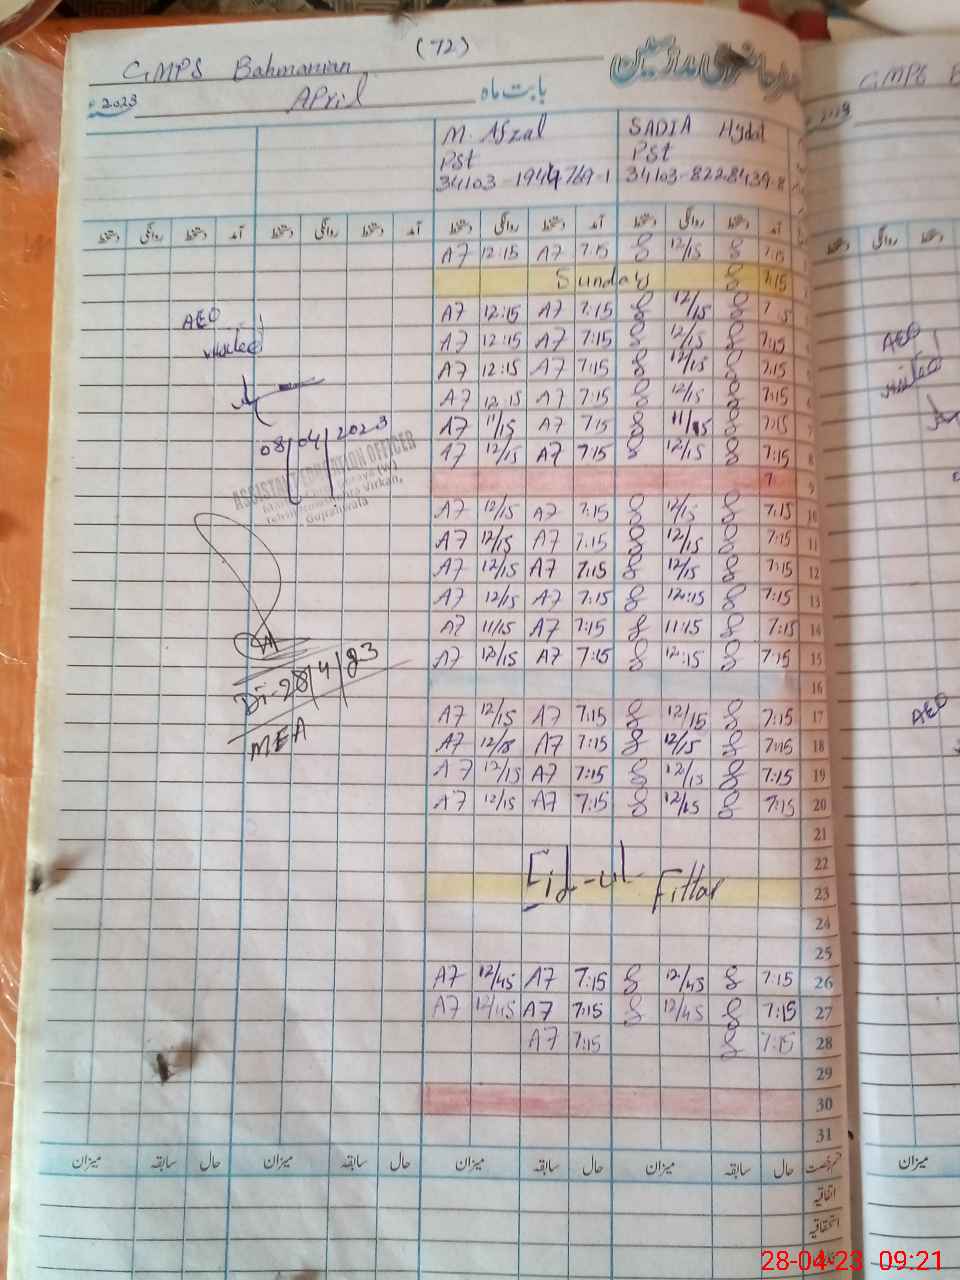 (72)
GMPS Bahmanian
2023 April بابت ماہ
M. Afzal SADIA
PSt PSt
34103-8228439-8
دستخط روانگی دستخط آمد دستخط روانگی دستخط آمد دستخط روانگی دستخط آمد دستخط روانگی دستخط آمد
A7 12:15 A7 7:15 12/15 7:15
Sunday 7:15
A7 12:15 A7 7:15 12/15
A7 12:15 A7 7:15 12/15 7:15
A7 12:15 A7 7:15 12/15 7:15
A7 12:15 A7 7:15 12/15 7:15
A7 11/15 A7 7:15 11/15 7:15 7
A7 12/15 A7 7:15 12/15 7:15 8
7 9
A7 12/15 A7 7:15 12/15 7:15 10
A7 12/15 A7 7:15 12/15 7:15 11
A7 12/15 A7 7:15 12/15 7:15 12
A7 12/15 A7 7:15 12:15 7:15 13
A7 11/15 A7 7:15 11:15 7:15 14
A7 12/15 A7 7:15 12:15 7:15 15
16
A7 12/15 A7 7:15 12/15 7:15 17
A7 A7 7:15 12/15 7:15 18
A7 12/15 A7 7:15 12/15 7:15 19
A7 12/15 A7 7:15 12/15 7:15 20
21
22
Eid-ul Fittar 23
24
25
A7 12/45 A7 7:15 12/45 7:15 26
A7 12/45 A7 7:15 12/45 7:15 27
A7 7:15 7:15 28
29
30
31
میزان سابقہ حال میزان سابقہ حال میزان سابقہ حال میزان سابقہ حال
اتفاقیہ
استحقاقیہ
AEO
visited
08/04/2023
ASSISTANT EDUCATION OFFICER
Virkan,
Gujranwala
Dt-28/4/23
MEA
GMPS B
AEO
visited
دستخط روانگی دستخط
AEO
میزان
28-04-23 09:21